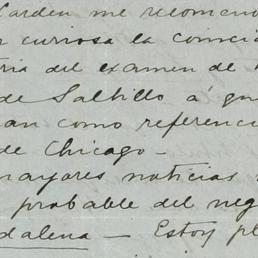 Carden me recomend
r curiosa la coincid
ria del examen de
de Saltillo á que
an como referenci
de Chicago —
mayores noticias
probable del neg
dalena — Estoy pl